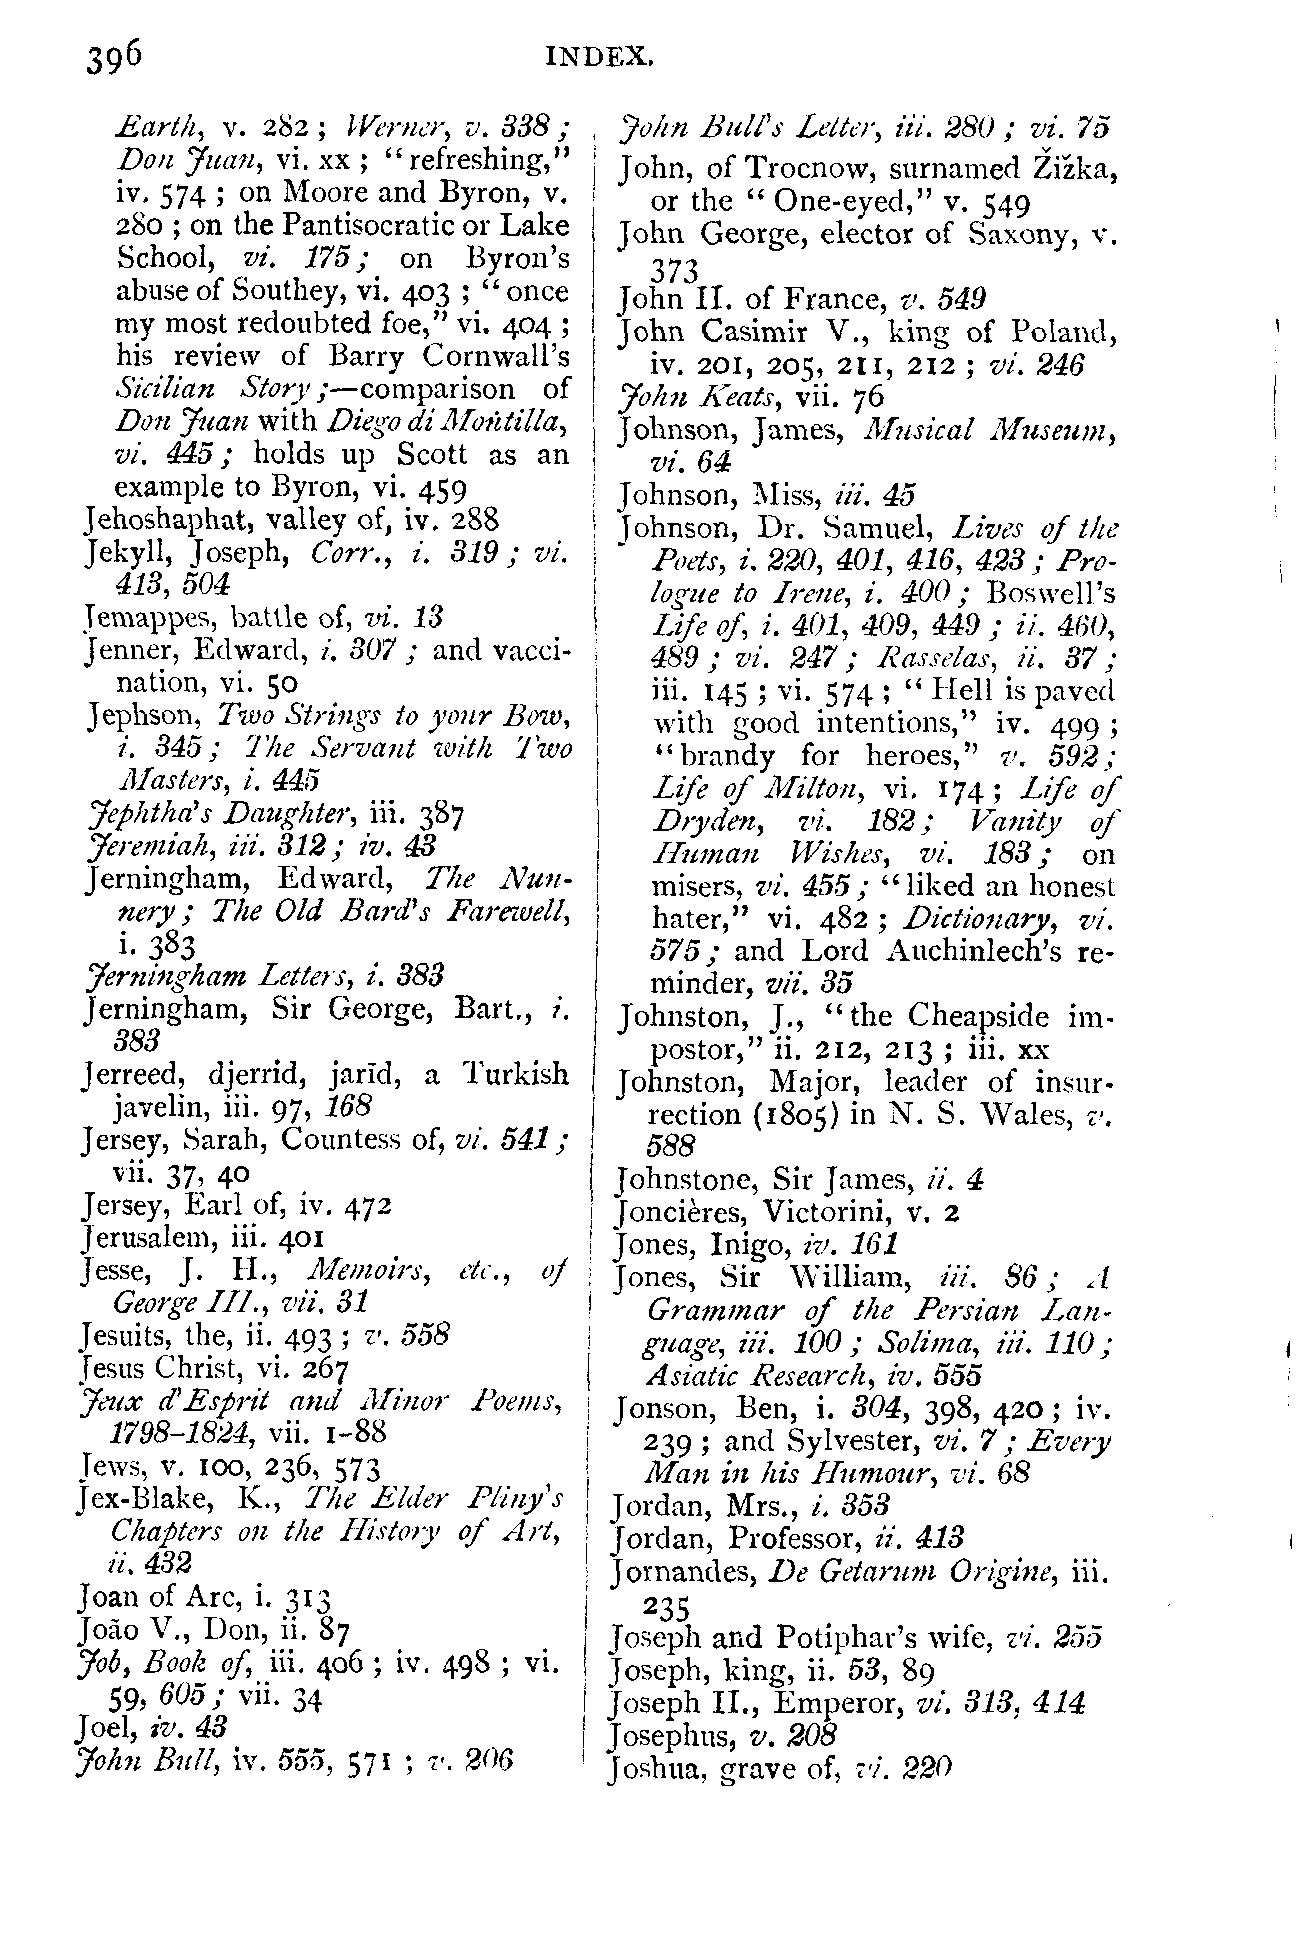 396
INDEX.
Earth, v. 282 ; Werner, v. 338 ;
Don Juan, vi. xx ; “refreshing,”
iv. 574 ; on Moore and Byron, v.
280 ; on the Pantisocratic or Lake
School, vi. 175 ; on Byron's
abuse of Southey, vi. 403 ; “once
my most redoubted foe,” vi. 404 ;
his review of Barry Cornwall's
Sicilian Story ;—comparison of
Don Juan with Diego di Montilla,
vi. 445 ; holds up Scott as an
example to Byron, vi. 459
Jehoshaphat, valley of, iv. 288
Jekyll, Joseph, Corr., i. 319 ; vi.
413, 504
Jemappes, battle of, vi. 13
Jenner, Edward, i. 307 ; and vacci-
nation, vi. 50
Jephson, Two Strings to your Bow,
i. 345 ; The Servant with Two
Masters, i. 445
Jephtha's Daughter, iii. 387
Jeremiah, iii. 312 ; iv. 43
Jerningham, Edward, The Nun-
nery ; The Old Bard's Farewell,
i. 383
Jerningham Letters, i. 383
Jerningham, Sir George, Bart., i.
383
Jerreed, djerrid, jarīd, a Turkish
javelin, iii. 97, 168
Jersey, Sarah, Countess of, vi. 541 ;
vii. 37, 40
Jersey, Earl of, iv. 472
Jerusalem, iii. 401
Jesse, J. H., Memoirs, etc., of
George III., vii. 31
Jesuits, the, ii. 493 ; v. 558
Jesus Christ, vi. 267
Jeux d'Esprit and Minor Poems,
1798–1824, vii. 1–88
Jews, v. 100, 236, 573
Jex-Blake, K., The Elder Pliny's
Chapters on the History of Art,
ii. 432
Joan of Arc, i. 313
João V., Don, ii. 87
Job, Book of, iii. 406 ; iv. 498 ; vi.
59, 605 ; vii. 34
Joel, iv. 43
John Bull, iv. 555, 571 ; v. 206
John Bull's Letter, iii. 280 ; vi. 75
John, of Trocnow, surnamed Žižka,
or the “ One-eyed,” v. 549
John George, elector of Saxony, v.
373
John II. of France, v. 549
John Casimir V., king of Poland,
iv. 201, 205, 211, 212 ; vi. 246
John Keats, vii. 76
Johnson, James, Musical Museum,
vi. 64
Johnson, Miss, iii. 45
Johnson, Dr. Samuel, Lives of the
Poets, i. 220, 401, 416, 423 ; Pro-
logue to Irene, i. 400 ; Boswell's
Life of, i. 401, 409, 449 ; ii. 460,
489 ; vi. 247 ; Rasselas, ii. 37 ;
iii. 145 ; vi. 574 ; “ Hell is paved
with good intentions,” iv. 499 ;
“brandy for heroes,” v. 592 ;
Life of Milton, vi. 174 ; Life of
Dryden, vi. 182 ; Vanity of
Human Wishes, vi. 183 ; on
misers, vi. 455 ; “liked an honest
hater,” vi. 482 ; Dictionary, vi.
575 ; and Lord Auchinlech's re-
minder, vii. 35
Johnston, J., “the Cheapside im-
postor,” ii. 212, 213 ; iii. xx
Johnston, Major, leader of insur-
rection (1805) in N. S. Wales, v.
588
Johnstone, Sir James, ii. 4
Joncières, Victorini, v. 2
Jones, Inigo, iv. 161
Jones, Sir William, iii. 86 ; A
Grammar of the Persian Lan-
guage, iii. 100 ; Solima, iii. 110 ;
Asiatic Research, iv. 555
Jonson, Ben, i. 304, 398, 420 ; iv.
239 ; and Sylvester, vi. 7 ; Every
Man in his Humour, vi. 68
Jordan, Mrs., i. 353
Jordan, Professor, ii. 413
Jornandes, De Getarum Origine, iii.
235
Joseph and Potiphar's wife, vi. 255
Joseph, king, ii. 53, 89
Joseph II., Emperor, vi. 313, 414
Josephus, v. 208
Joshua, grave of, vi. 220